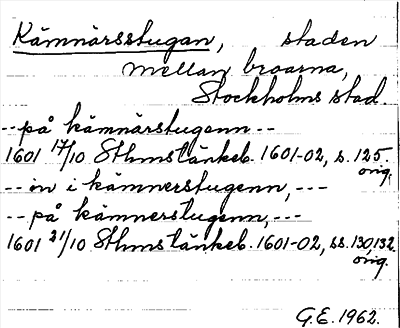 Kämnärsstugan, staden
mellan broarna,
Stockholms stad.
--på kämnärstugenn--
1601 17/10 Sthmstänkeb. 1601-02, s. 125.
orig.
--in i kämnerstugenn,---
--på kämnerstugenn,---
1601 21/10 Sthmstänkeb. 1601-02, ss. 130, 132.
orig.
G.E. 1962.